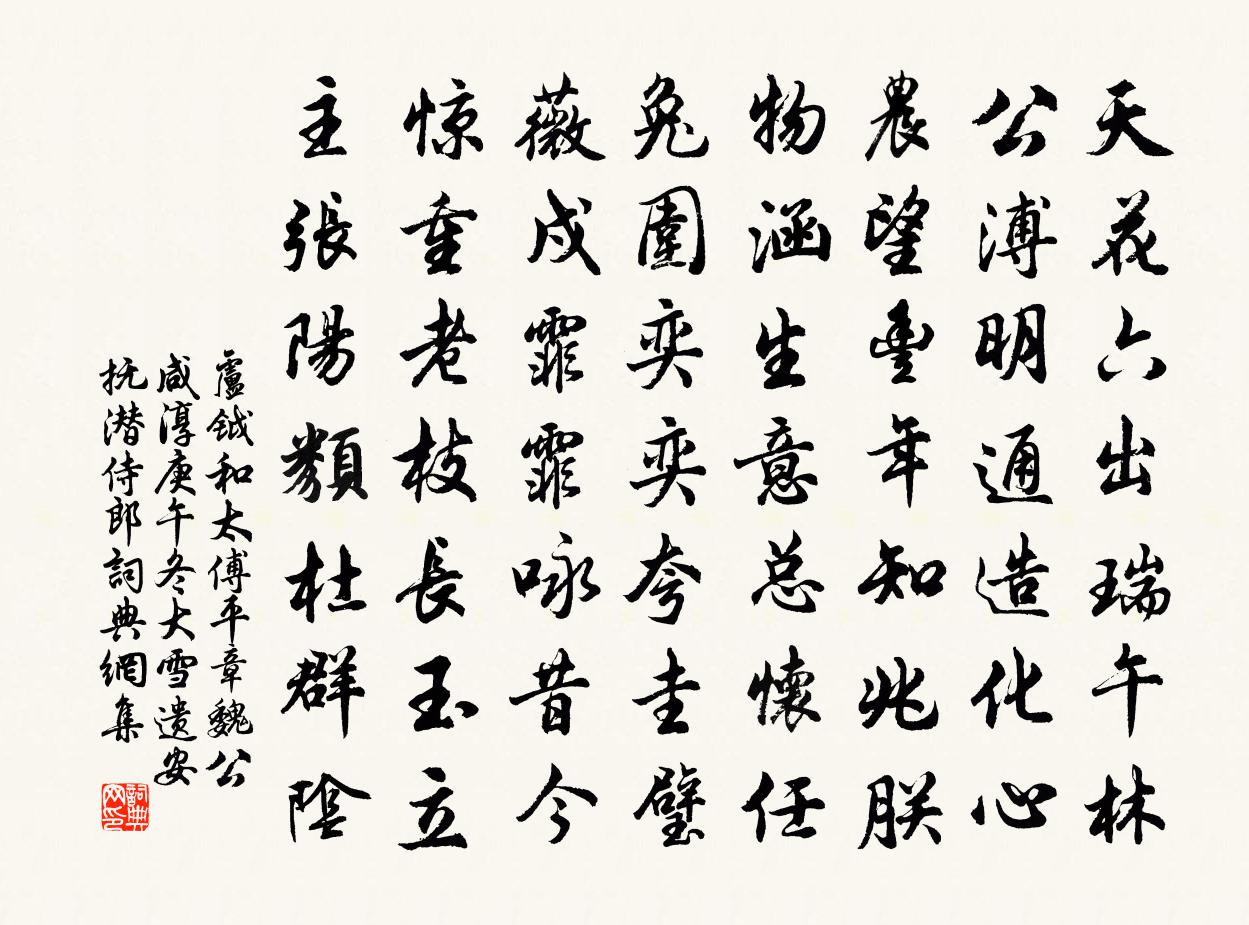 天花六出瑞午林
公溥明通造化心
農望豊年知兆朕
物涵生意总懷任
兔園奕奕夸圭璧
薇戍霏霏咏昔今
惊重老枝長玉立
主張陽類杜群陰
盧鉞和太傅平章魏公
咸淳庚午冬大雪遗安
抚潜侍郎詞典網集
詞典网印